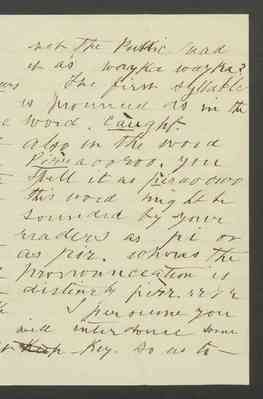 not the Public read
it as wayka wayka?
The first syllable
is prounced as in the
word. Caught.
also in the word
Pirraooroo. you
spell it as piraoowo
this word might be
sounded by your
readers as pi or
as pir. whereas the
pronounceation is
distinctly pirr.
perceive you
will interduce some
Key. so as to